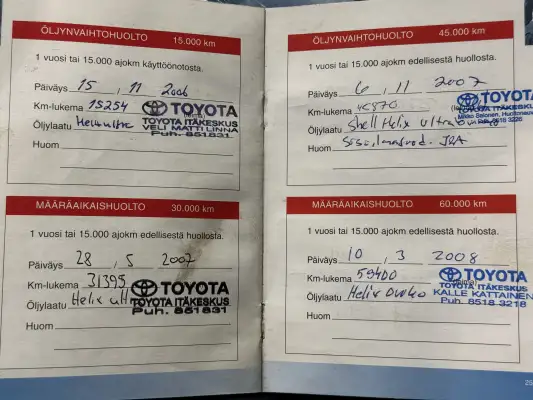 ÖLJYNVAIHTOHUOLTO 15.000 km
1 vuosi tai 15.000 ajokm käyttöönotosta.
Päiväys 15 , 11 2006
Km-lukema 15254
TOYOTA
TOYOTA ITÄKESKUS
VELI MATTI LINNA
Puh. 851831
Öljylaatu
Huom
MÄÄRÄAIKAISHUOLTO 30.000 km
1 vuosi tai 15.000 ajokm edellisestä huollosta.
Päiväys 28 , 5 2007
Km-lukema 31395
TOYOTA
TOYOTA ITÄKESKUS
Puh. 851831
Öljylaatu Helix
Huom
ÖLJYNVAIHTOHUOLTO 45.000 km
1 vuosi tai 15.000 ajokm edellisestä huollosta.
Päiväys 6 , 11 2007
Km-lukema
TOYOTA
TOYOTA ITÄKESKUS
Mikko Salonen, Huoltoneuvoja
Öljylaatu Shell Helix ultra
Huom
MÄÄRÄAIKAISHUOLTO 60.000 km
1 vuosi tai 15.000 ajokm edellisestä huollosta.
Päiväys 10 , 3 2008
Km-lukema 59400
TOYOTA
TOYOTA ITÄKESKUS
KALLE KATTAINEN
Puh. 8518 3218
Öljylaatu Helix
Huom